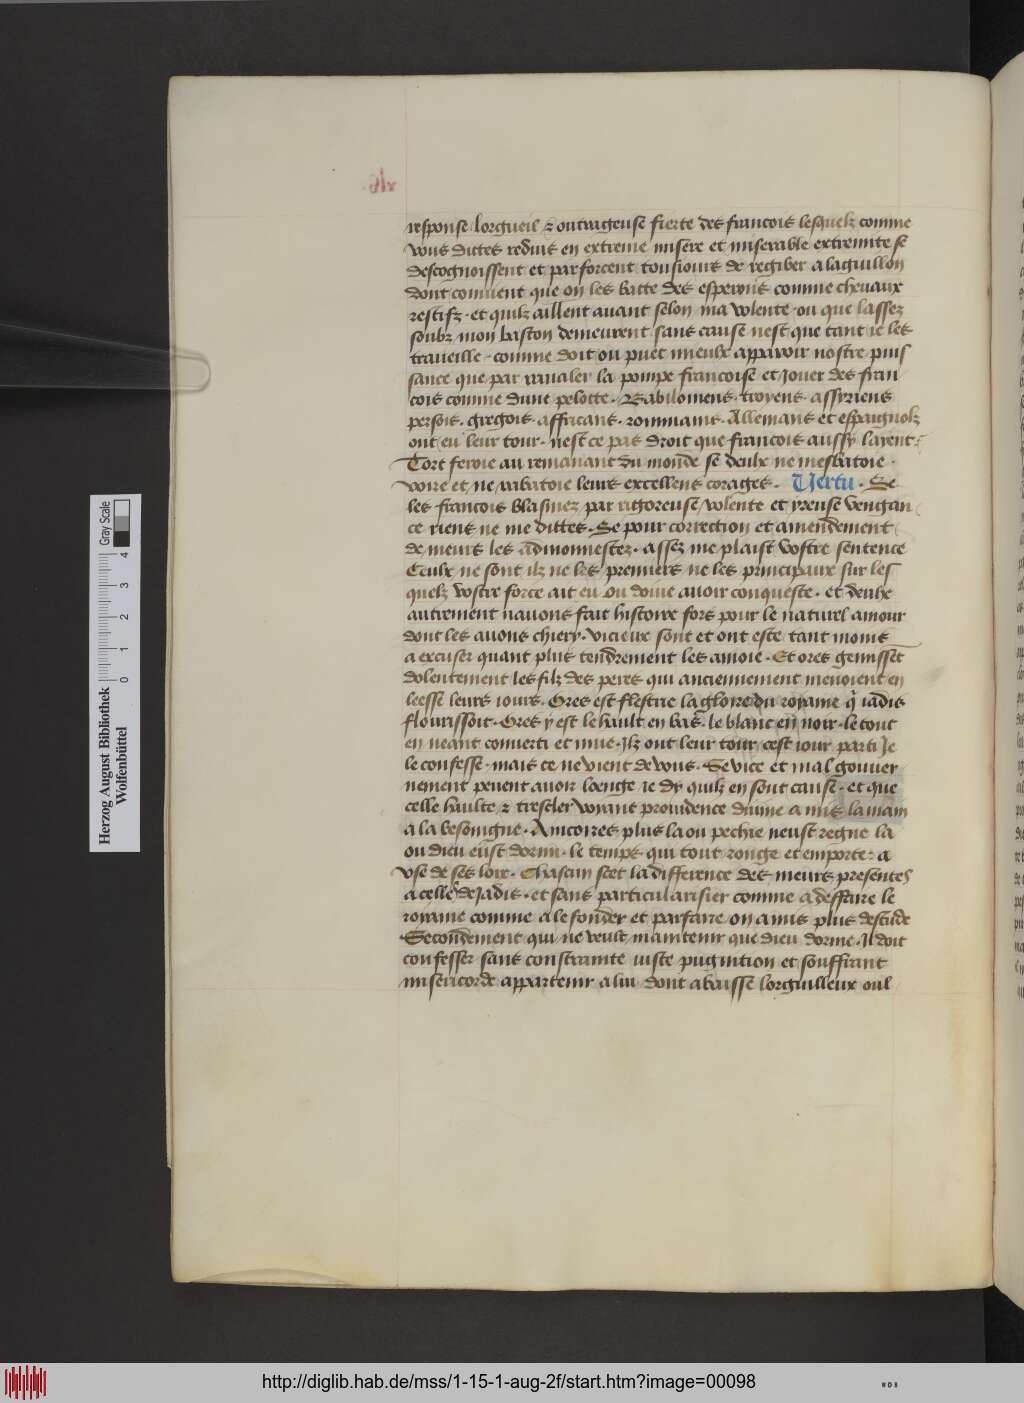 response lorgueil & oultrageuse fierte des francois lesquelz comme
vous dictes reduis en extreme misere et miserable extremite se
descognoissent et parforcent tousiours de regiber a laguillon
dont conuient que on les batte des esperons comme cheuaux
restifz · et quilz aillent auant selon ma volente · ou que lassez
soubz mon baston demeurent sans cause nest que tant ie les
traueille · comme doit ou puet mieulx apparoir nostre puis
sance que par raualer la pompe francoise et Jouer des fran
cois comme dune pelotte · Babiloniens · troyens · assyriens
persois · gregois · affricans · rommains · Allemans et espaignolz
ont eu leur tour · nest ce pas droit que francois aussy laient
Tort feroie au remanant du monde se deulx ne mesbatoie ·
voire et ne rabatoie leurs excellens corages · Vertu · Se
les francois blasmez par rigoreuse volente et yreuse vengan
ce riens ne me dittes · Se pour correction et amendement
de meurs les admonnestez · assez me plaist vostre sentence
Ceulx ne sont ilz ne les premiers ne les principaux sur les
quelz vostre force ait eu ou doiue auoir conqueste · et deulx
autrement nauons fait histoire fors pour le naturel amour
dont les auons chiery · vicieux sont et ont este tant moins
a excuser quant plus tendrement les amoie · Et ores gemissēt
dolentement les filz des peres qui anciennement menoient en
leesse leurs iours · Ores est flestrie la gloire du royame q̄ iadis
flourissoit · Ores y est le hault en bas · le blanc en noir · le tout
en neant conuerti et mue · Ilz ont leur tour cest iour parti Je
le confesse · mais ce ne vient de vous · Se vice et mal gouuer
nement peuent auoir loenge ie dy quilz en sont cause · et que
celle haulte & trescler voyant prouidence diuine a mis la main
a la besoingne · Ancoires plus la ou pechie neust regne la
ou dieu eust dormi · le temps qui tout ronge et emporte · a
vse de ses loix · Chascun scet la difference des meurs presentes
a celle de Jadis · et sans particularisier comme a deffaire le
royame comme a le fonder et parfaire on a mis plus destude
Secondement qui ne veult maintenir que dieu dorme · Il doit
confesser sans constrainte iuste pugnition et souffrant
misericorde appartenir a lui dont abaisse lorguilleux oul
Herzog August Bibliothek
Wolfenbüttel
0 1 2 3 4
Gray Scale
http://diglib.hab.de/mss/1-15-1-aug-2f/start.htm?image=00098